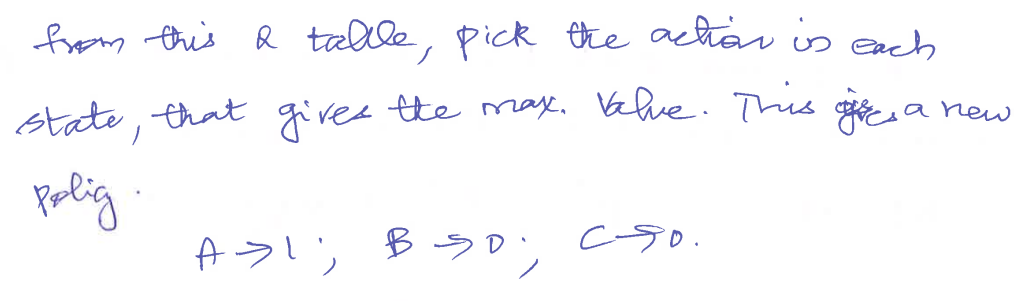 from this Q table, pick the action in each
state, that gives the max. Value. This gives a new
policy.
A → 1; B → 0; C → 0.